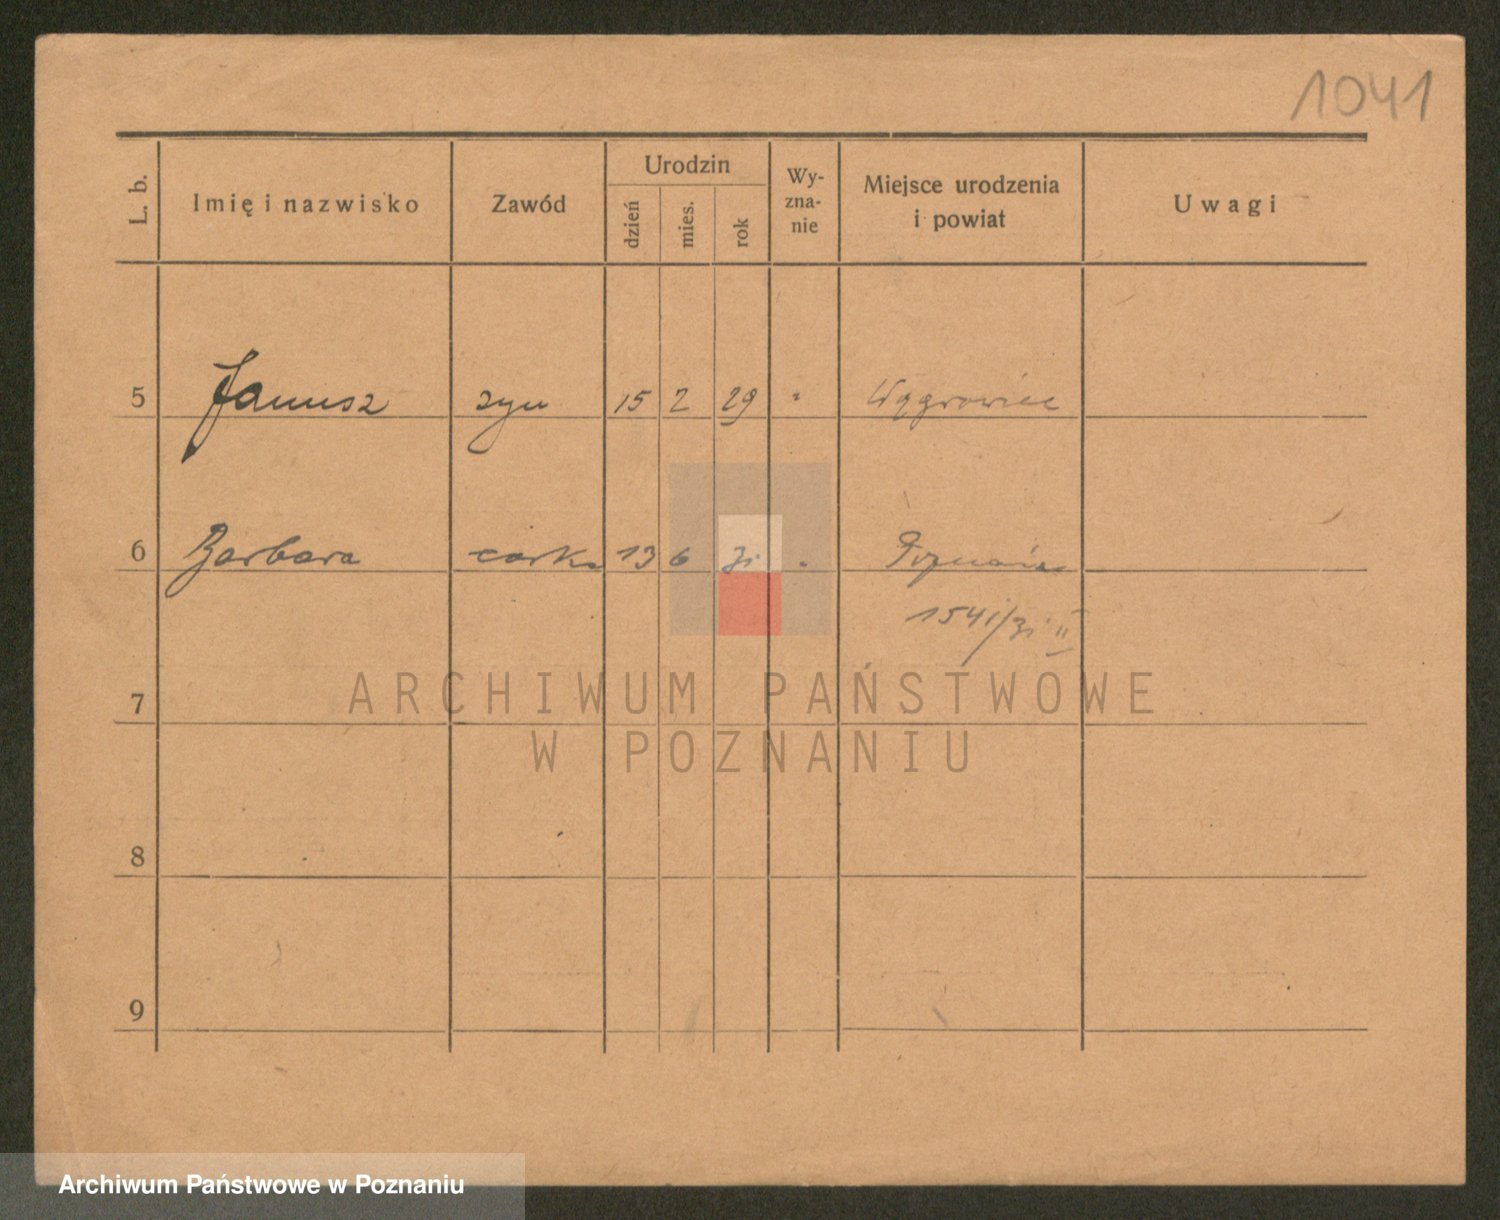 1041
L. b.
Imię i nazwisko
Zawód
Urodzin
dzień
mies.
rok
Wy-
zna-
nie
Miejsce urodzenia
i powiat
Uwagi
5 Janusz syn 15 2 29 " Wągrowiec
6 Barbara corka 13 6 31 "
1541/31 II
7
8
9
ARCHIWUM PAŃSTWOWE
W POZNANIU
Archiwum Państwowe w Poznaniu